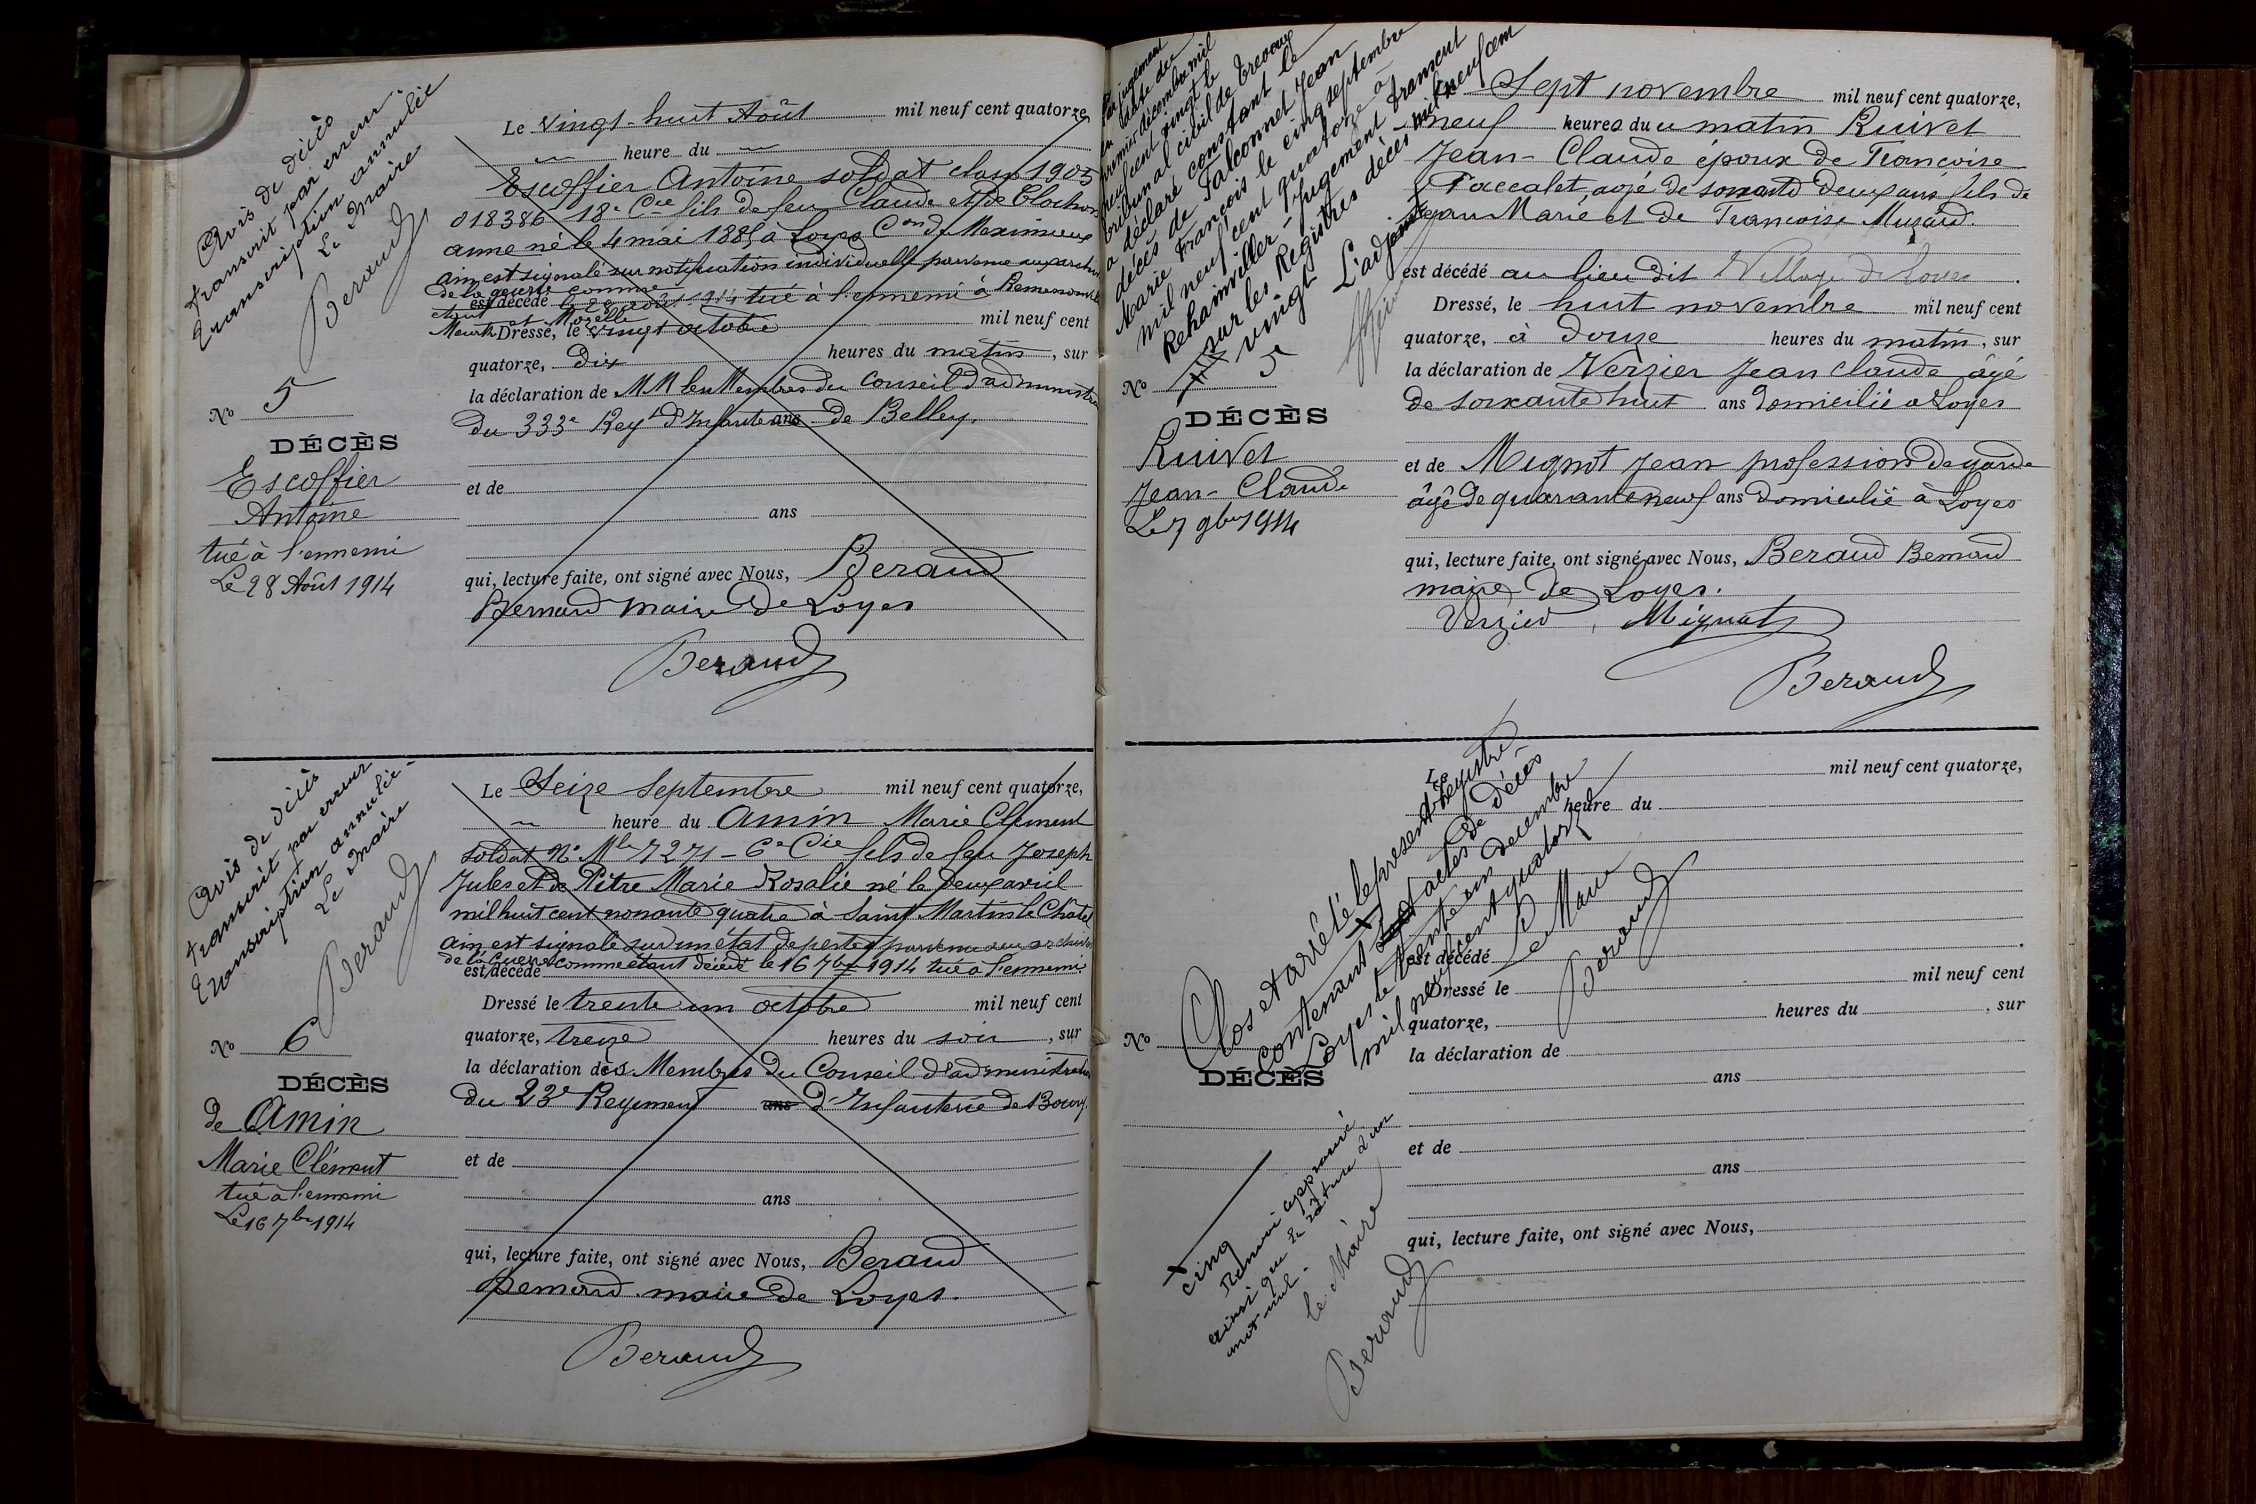 Avis de décès
transcrit par erreur.
transcription annulée
Le Maire
Beraud
No 5
DÉCÈS
Escoffier
Antoine
tué à l'ennemi
Le 28 Août 1914
Le vingt-huit Août mil neuf cent quatorze,
heure du
Escoffier Antoine soldat classe 1905
018386 18e Cie fils de feu Claude et de Clochon
anne né le 4 mai 1885 à Loyes Con de Meximieux
ain est signalé sur notification individuelle parvenue aux archives
de la guerre comme
étant est décédé le 28 août 1914 tué à l'ennemi à
Meurthe et Moselle
Dressé, le vingt octobre mil neuf cent
quatorze, dix heures du matin, sur
la déclaration de MM les Membres du Conseil d'administration
du 333e Regt d'Infanterie ans de Belley.
et de
ans
qui, lecture faite, ont signé avec Nous, Beraud
Bernard maire de Loyes
Beraud
Avis de décès
transcrit par erreur
transcription annulée-
Le Maire
Beraud
No 6
DÉCÈS
de Amin
Marie Clément
tué à l'ennemi
Le 16 7bre 1914
Le Seize Septembre mil neuf cent quatorze,
heure du Amin Marie Clément
soldat No Mle 7271 - 6e Cie fils de feu Joseph
Jules et de Pitre Marie Rosalie né le deux avril
mil huit cent nonante quatre à Saint Martin le Châtel
ain est signalé sur un état de pertes parvenu aux archives
de la Guerre comme étant décédé le 16 7bre 1914 tué à l'ennemi
est décédé
Dressé le trente un octobre mil neuf cent
quatorze, treize heures du soir, sur
la déclaration des Membres du Conseil d'administration
du 23e Regiment ans d'Infanterie de Bourg.
et de
ans
qui, lecture faite, ont signé avec Nous, Beraud
Bernard maire de Loyes.
Beraud
Par jugement
en date du
premier décembre mil
neuf cent vingt le
tribunal civil de Trevoux
a déclaré constant le
décès de Falconnet Jean
Marie François le cinq septembre
mil neuf cent quatorze à
Rehainviller - Jugement transcrit
sur les Registres décès mil neuf cent
vingt L'adjoint
No 5
DÉCÈS
Ruivet
Jean-Claude
Le 7 9bre 1914
Le Sept novembre mil neuf cent quatorze,
neuf heures du matin Ruivet
Jean-Claude époux de Françoise
Paccalet, agé de soixante deux ans, fils de
Jean Marie et de Françoise Musard.
est décédé au lieu dit Village de Loyes.
Dressé, le huit novembre mil neuf cent
quatorze, à douze heures du matin, sur
la déclaration de Verzier Jean Claude âgé
de soixante huit ans domicilié à Loyes
et de Mignot Jean profession de garde
âgé de quarante neuf ans domicilié à Loyes
qui, lecture faite, ont signé avec Nous, Beraud Bernard
maire de Loyes.
Verzier, Mignot
Beraud
Clos et arrêté le présent Registre
contenant actes de décès
Loyes le trente un décembre
mil neuf cent quatorze
Le Maire
Beraud
Le mil neuf cent quatorze,
heure du
est décédé
Dressé le mil neuf cent
quatorze, heures du, sur
No
DÉCÈS
la déclaration de
ans
et de
ans
qui, lecture faite, ont signé avec Nous,
cinq
Renvoi approuvé
ainsi que la rature d'un
mot nul.
le Maire
Beraud